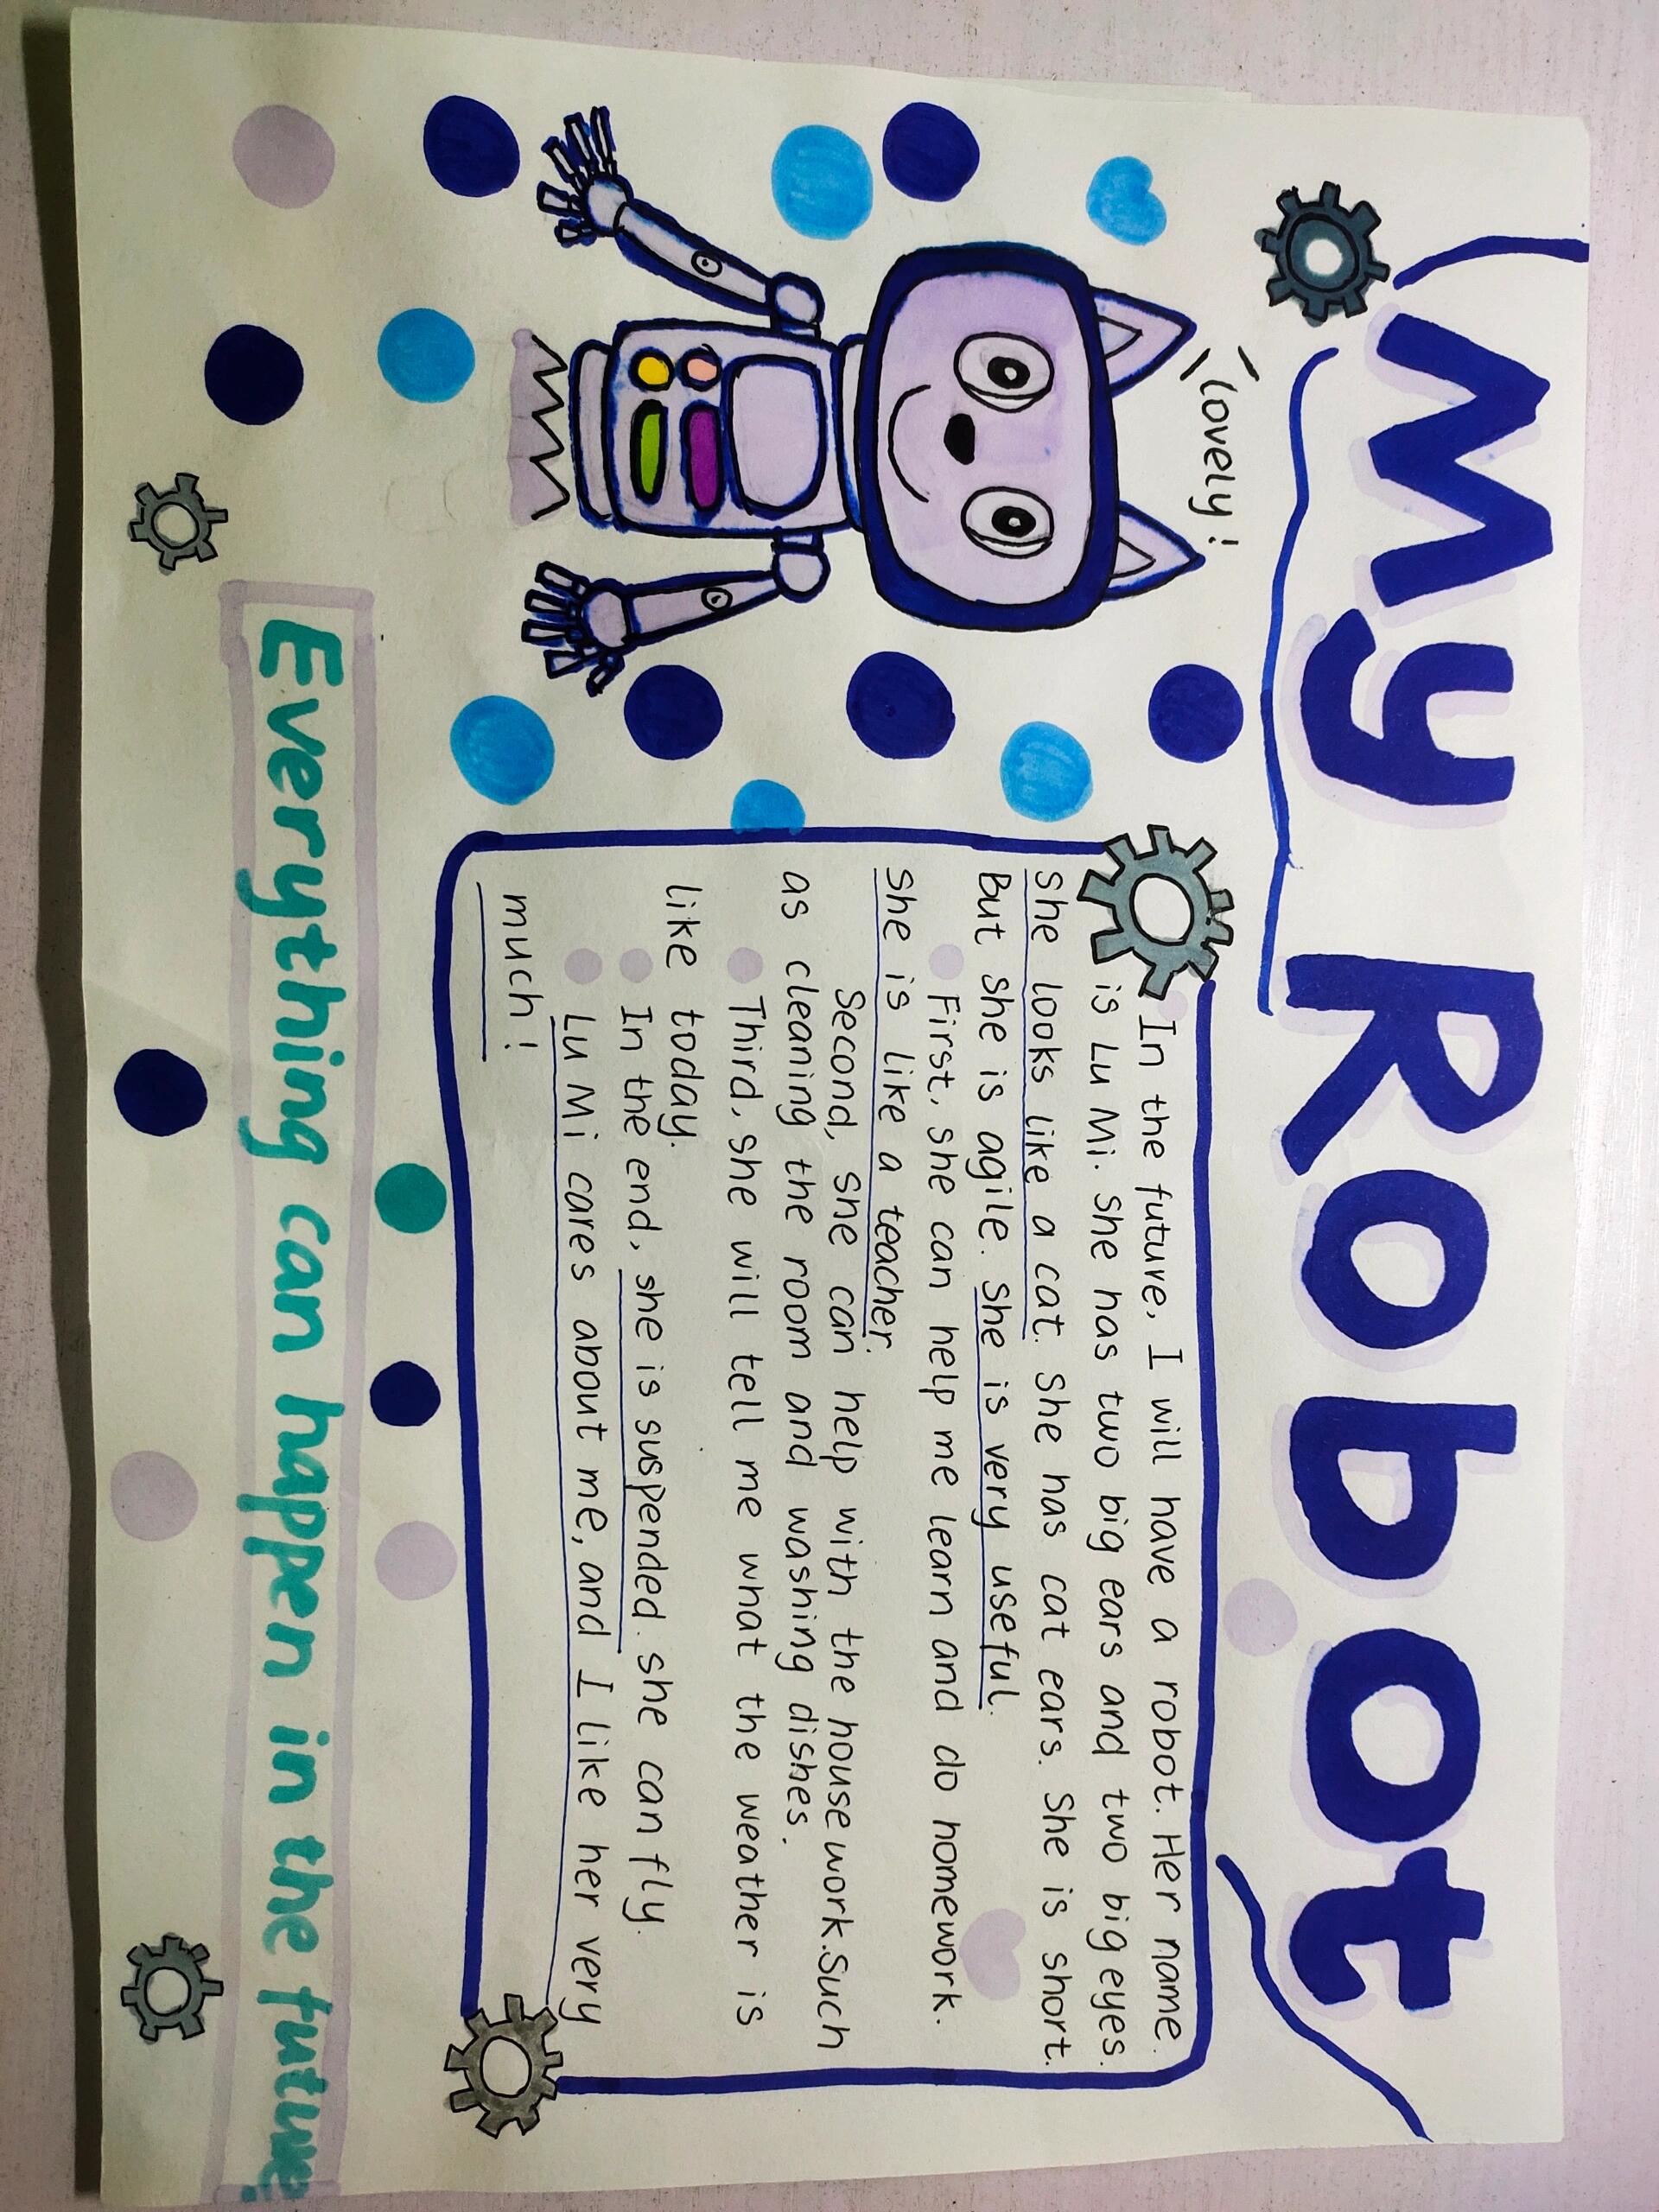 My Robot
lovely!
In the future, I will have a robot. Her name
is Lu Mi. She has two big ears and two big eyes.
She looks like a cat. She has cat ears. She is short.
But she is agile. She is very useful.
First, she can help me learn and do homework.
She is like a teacher.
Second, she can help with the housework.Such
as cleaning the room and washing dishes.
Third, she will tell me what the weather is
like today.
In the end, she is suspended. She can fly.
Lu Mi cares about me, and I like her very
much!
Everything can happen in the future!